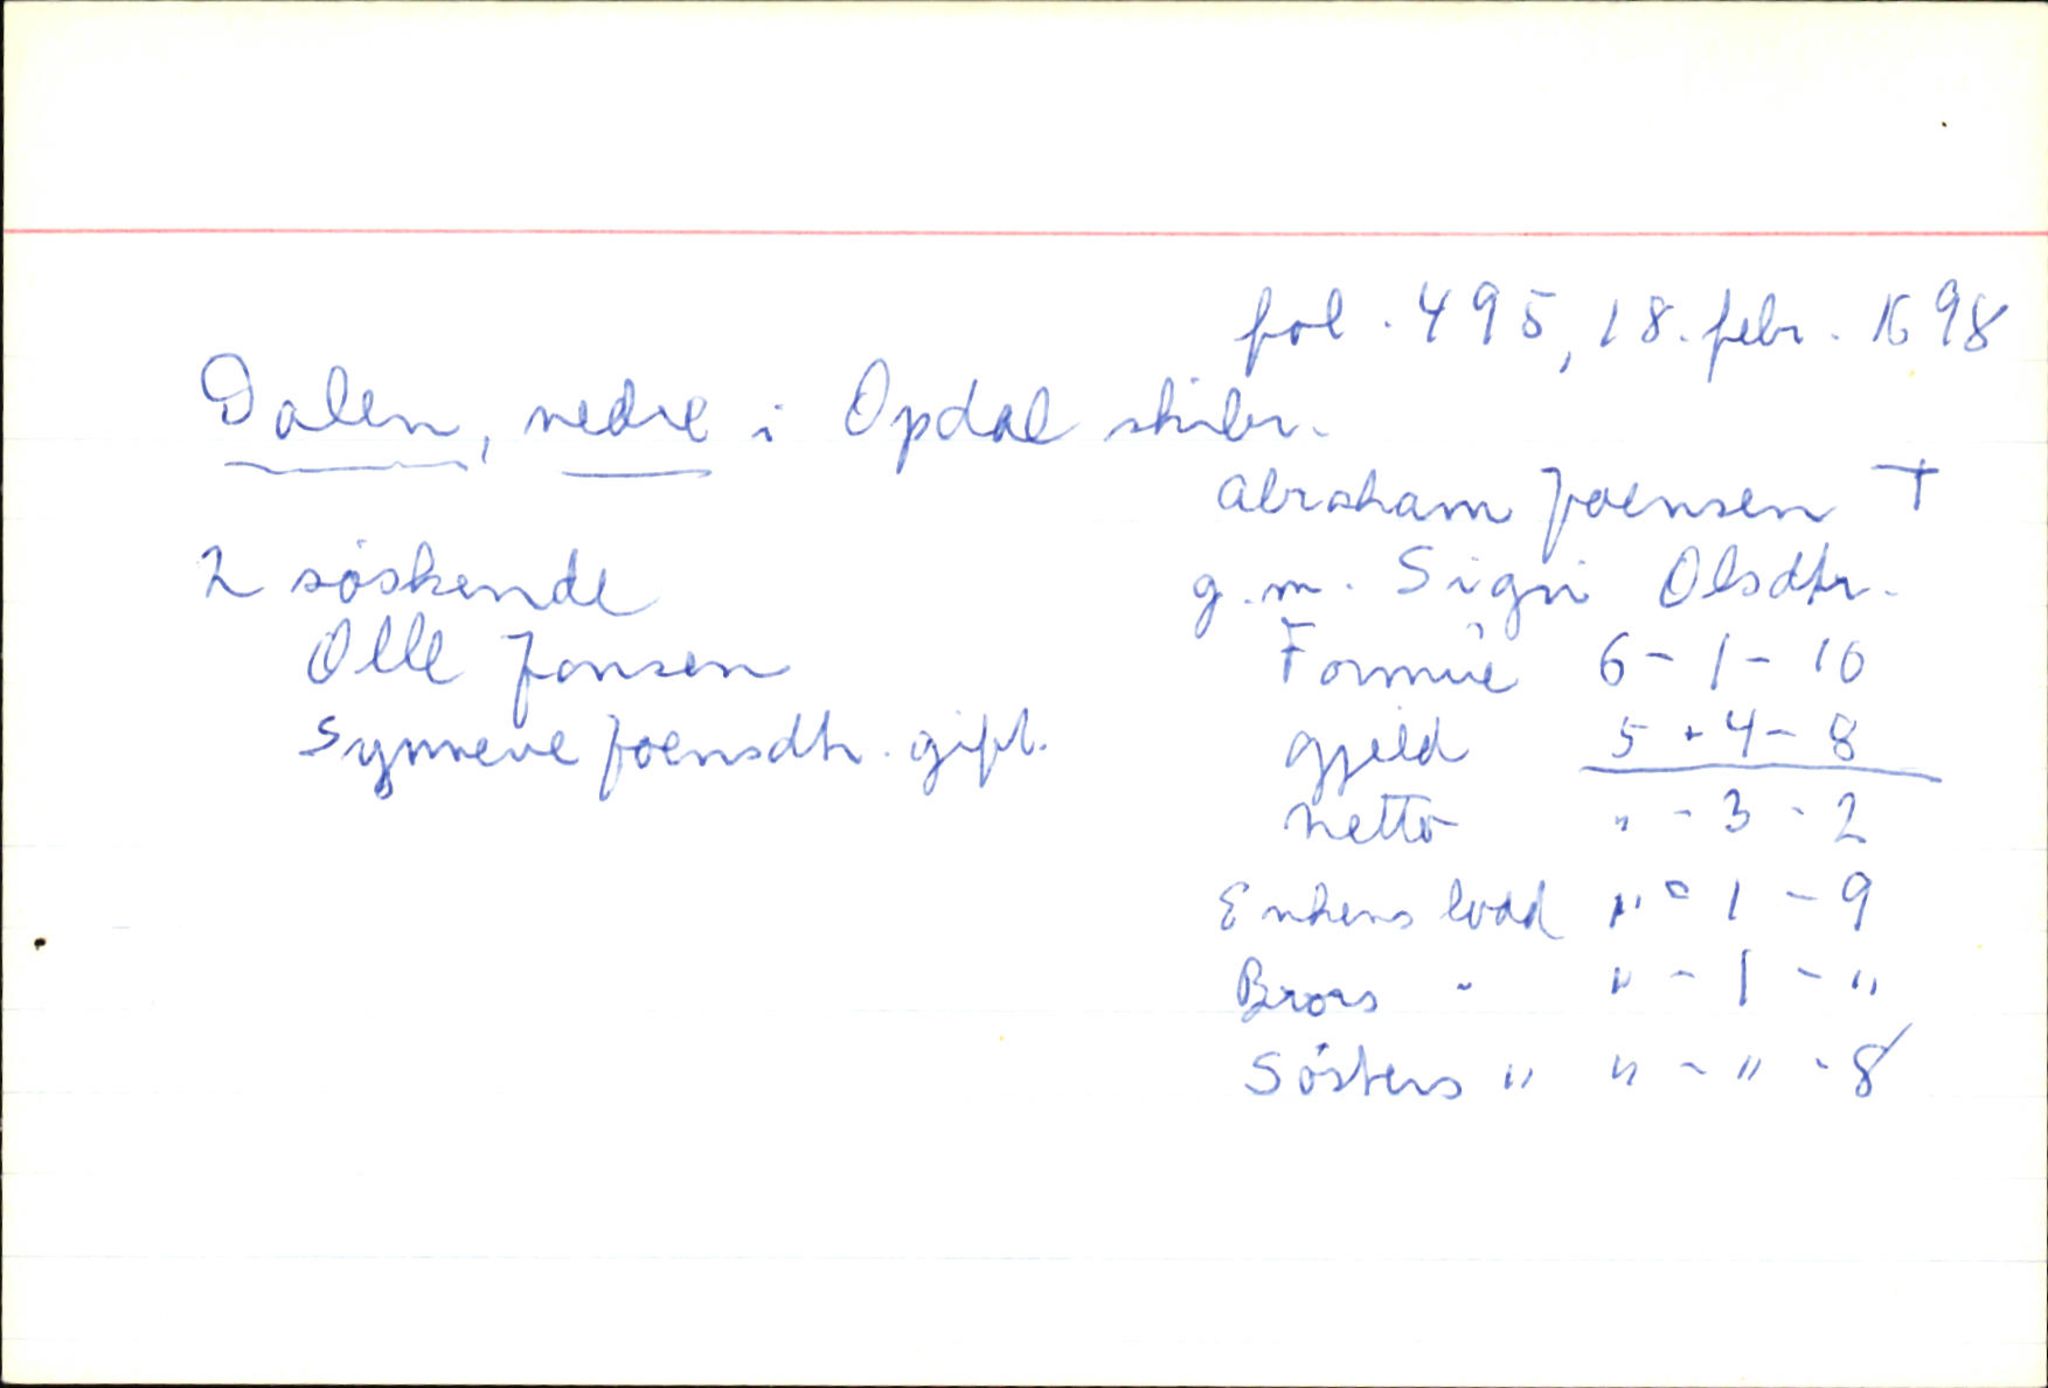 fol. 495, 18. febr. 1698
Dalen, nedre i Opdal skibr.
Abraham Joensen †
g.m. Signi Olsdtr.
2 söskende
Olle Jonsen
Synneve Joensdtr. gift.
Formue 6 - 1 - 10
Gjeld 5 - 4 - 8
Netto " - 3 - 2
Enkens lodd " - 1 - 9
Brors " " - 1 - "
Sösters " " - " - 8